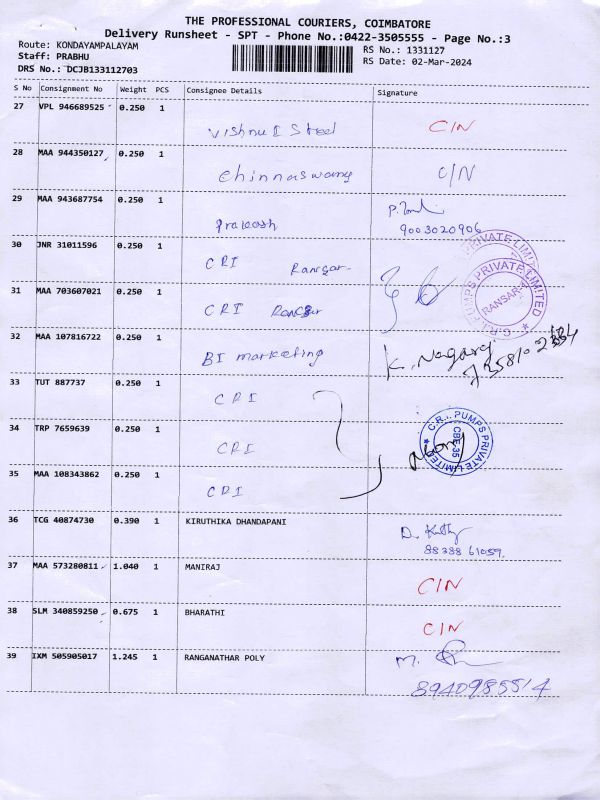 THE PROFESSIONAL COURIERS, COIMBATORE
Delivery Runsheet - SPT - Phone No.:0422-3505555 - Page No.:3
Route: KONDAYAMPALAYAM
RS No.: 1331127
Staff: PRABHU
RS Date: 02-Mar-2024
DRS No.: DCJB133112703
S No Consignment No Weight PCS Consignee Details Signature
27 VPL 946689525 0.250 1 Vishnu I Steel C/N
28 MAA 944350127 0.250 1 Chinnaswamy C/N
29 MAA 943687754 0.250 1 Prakash 9003020906
30 JNR 31011596 0.250 1 CRI Ransar
31 MAA 703607021 0.250 1 CRI Ransar
C.R.I. PUMPS PRIVATE LIMITED
RANSAR
32 MAA 107816722 0.250 1 BI marketing K. Nagaraj
33 TUT 887737 0.250 1 CRI
34 TRP 7659639 0.250 1 CRI
C.R.I. PUMPS PRIVATE LIMITED
CBE-35
35 MAA 108343862 0.250 1 CRI
36 TCG 40874730 0.390 1 KIRUTHIKA DHANDAPANI
88388 61059
37 MAA 573280811 1.040 1 MANIRAJ C/N
38 SLM 340859250 0.675 1 BHARATHI C/N
39 IXM 505905017 1.245 1 RANGANATHAR POLY M.
8940985514